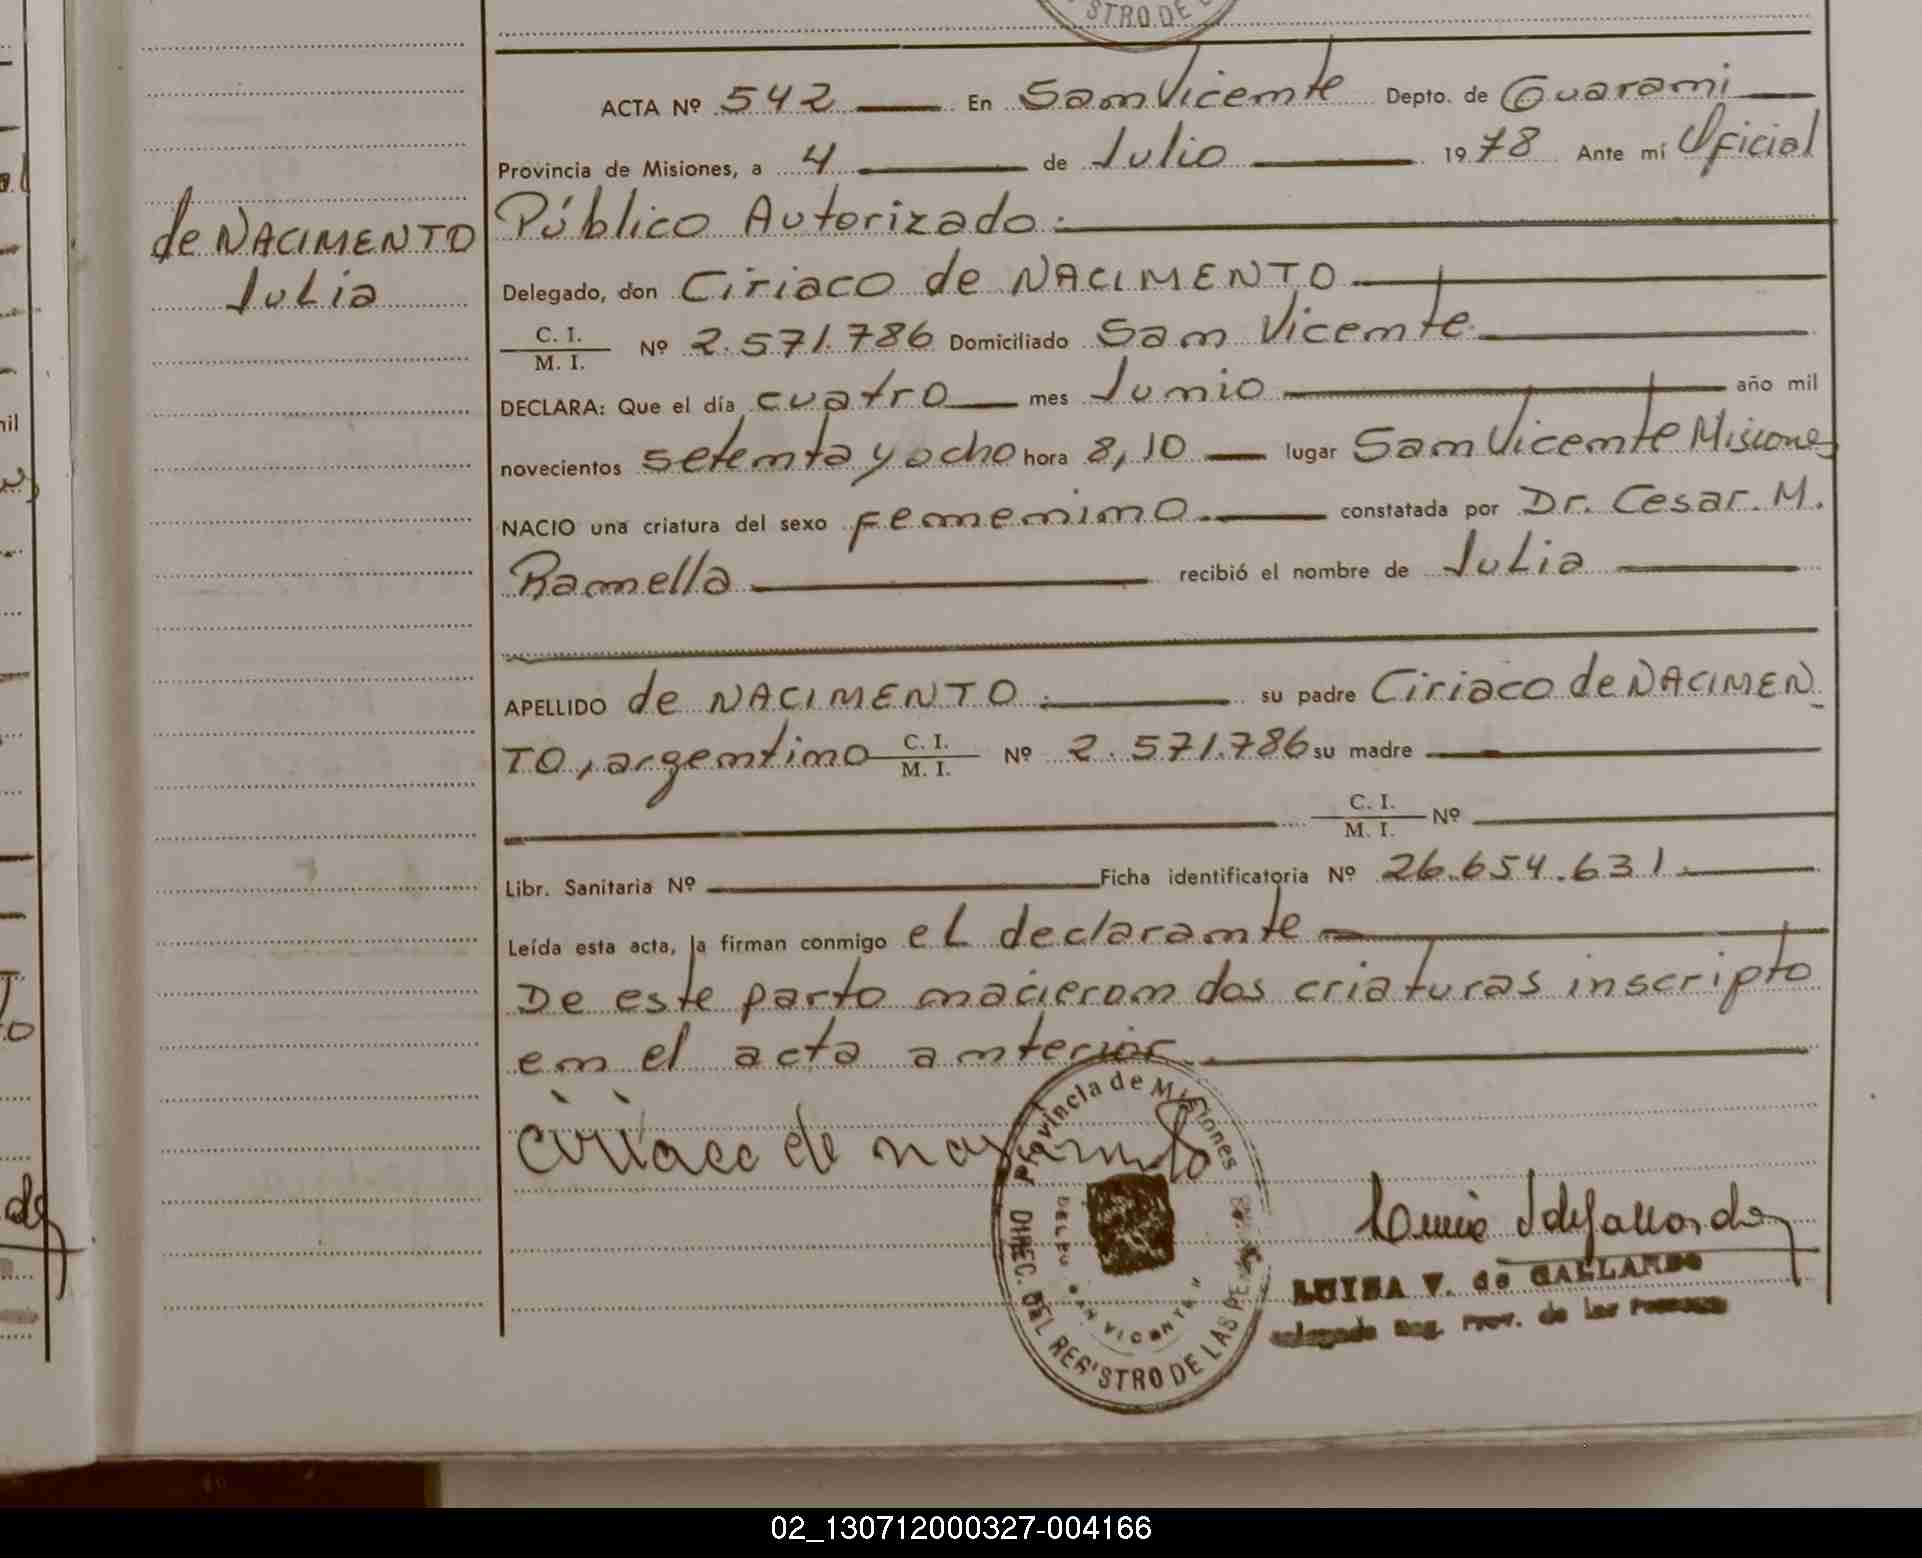 STRO DE L
ACTA Nº 542 En San Vicente Depto. de Guarani
Provincia de Misiones, a 4 de Julio 1978 Ante mí Oficial
Público Autorizado:
de NACIMENTO
Julia
Delegado, don Ciriaco de NACIMENTO
C. I.
M. I. Nº 2.571.786 Domiciliado San Vicente
DECLARA: Que el día cuatro mes Junio año mil
novecientos setenta y ocho hora 8,10 lugar San Vicente Misiones
NACIO una criatura del sexo femenino constatada por Dr. Cesar. M.
Ramella recibió el nombre de Julia
APELLIDO de NACIMENTO. su padre Ciriaco de NACIMEN
TO, argentino C. I.
M. I. Nº 2.571.786 su madre
C. I.
M. I. Nº
Libr. Sanitaria Nº Ficha identificatoria Nº 26.654.631.
Leída esta acta, la firman conmigo el declarante
De este parto nacieron dos criaturas inscripto
en el acta anterior
Ciriaco de
Provincia de Misiones
DIREC. DEL REGISTRO DE LAS PE
VICENTE
LUISA V. de GALLARDO
Delegada Reg. Prov. de las Personas
02_130712000327-004166